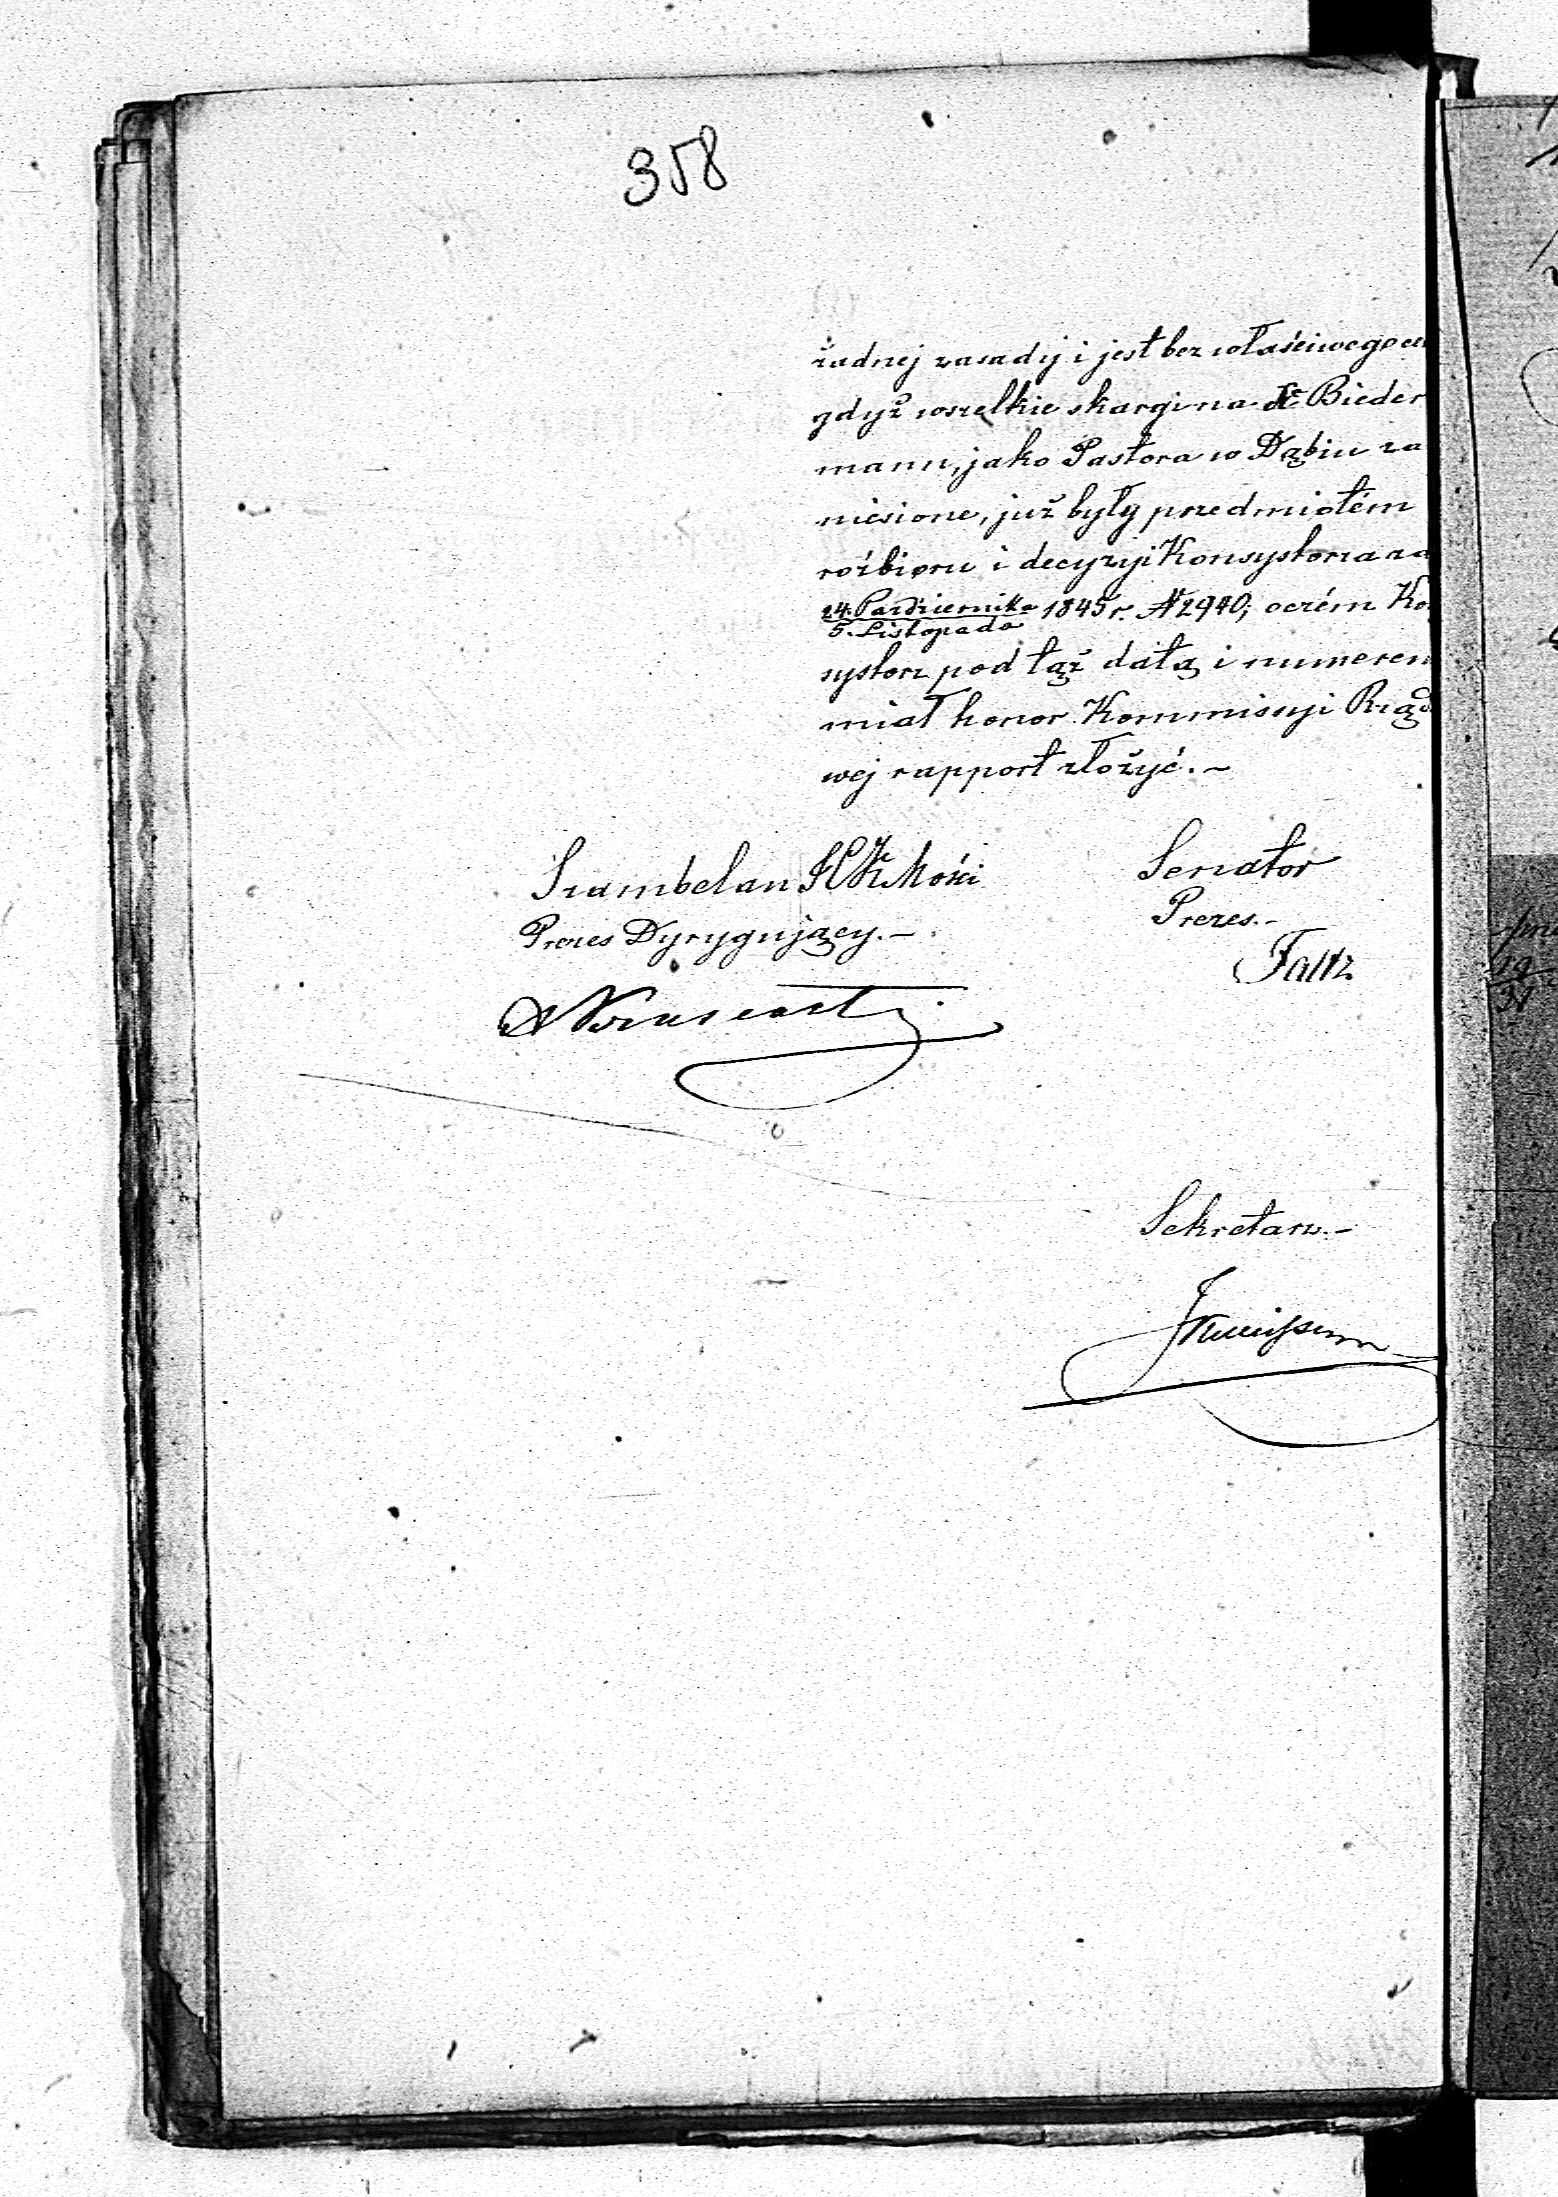 358
żadnej zasady i jest bez właściwego
gdyż wszelkie skargi na X. Bieder
mann, jako Pastora w Dąbiu za
niesione, już były przedmiotém
rozbioru i decyzyi Konsystorza
24. Października 1845 r. N 2940; oczém
5. Listopada
systorz pod tąż datą i numerem
miał honor Kommissyi Rządo
wej rapport złożyć. –
Szambelan JCKMości
Senator
Prezes Dyrygujący. –
Prezes. –
Sekretarz. –